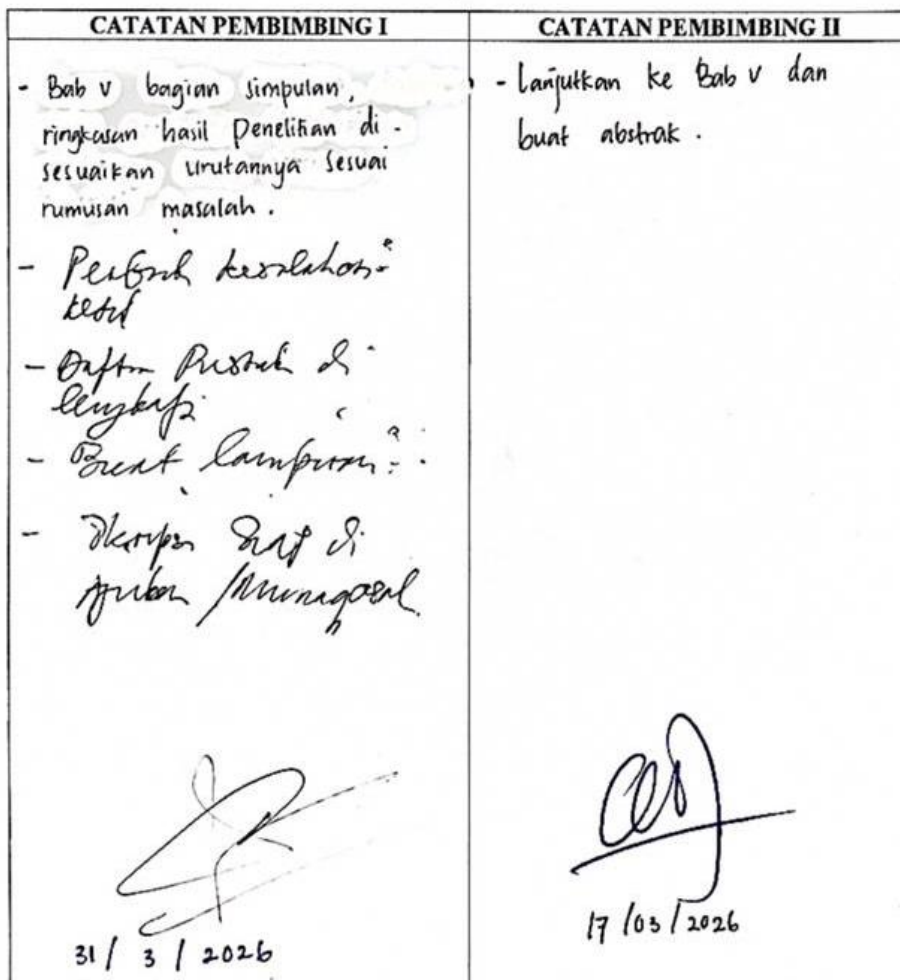 CATATAN PEMBIMBING I
- Bab V bagian simpulan,
ringkasan hasil Penelitian di -
sesuaikan Urutannya Sesuai
rumusan masalah.
- Perbaiki kesalahan"
kecil
- Daftar Pustaka di
lengkapi
- Buat lampiran"
- Skripsi Siap di
ajukan /Munaqasah
31 / 3 / 2026
CATATAN PEMBIMBING II
- lanjutkan ke Bab V dan
buat abstrak.
17 /03 / 2026